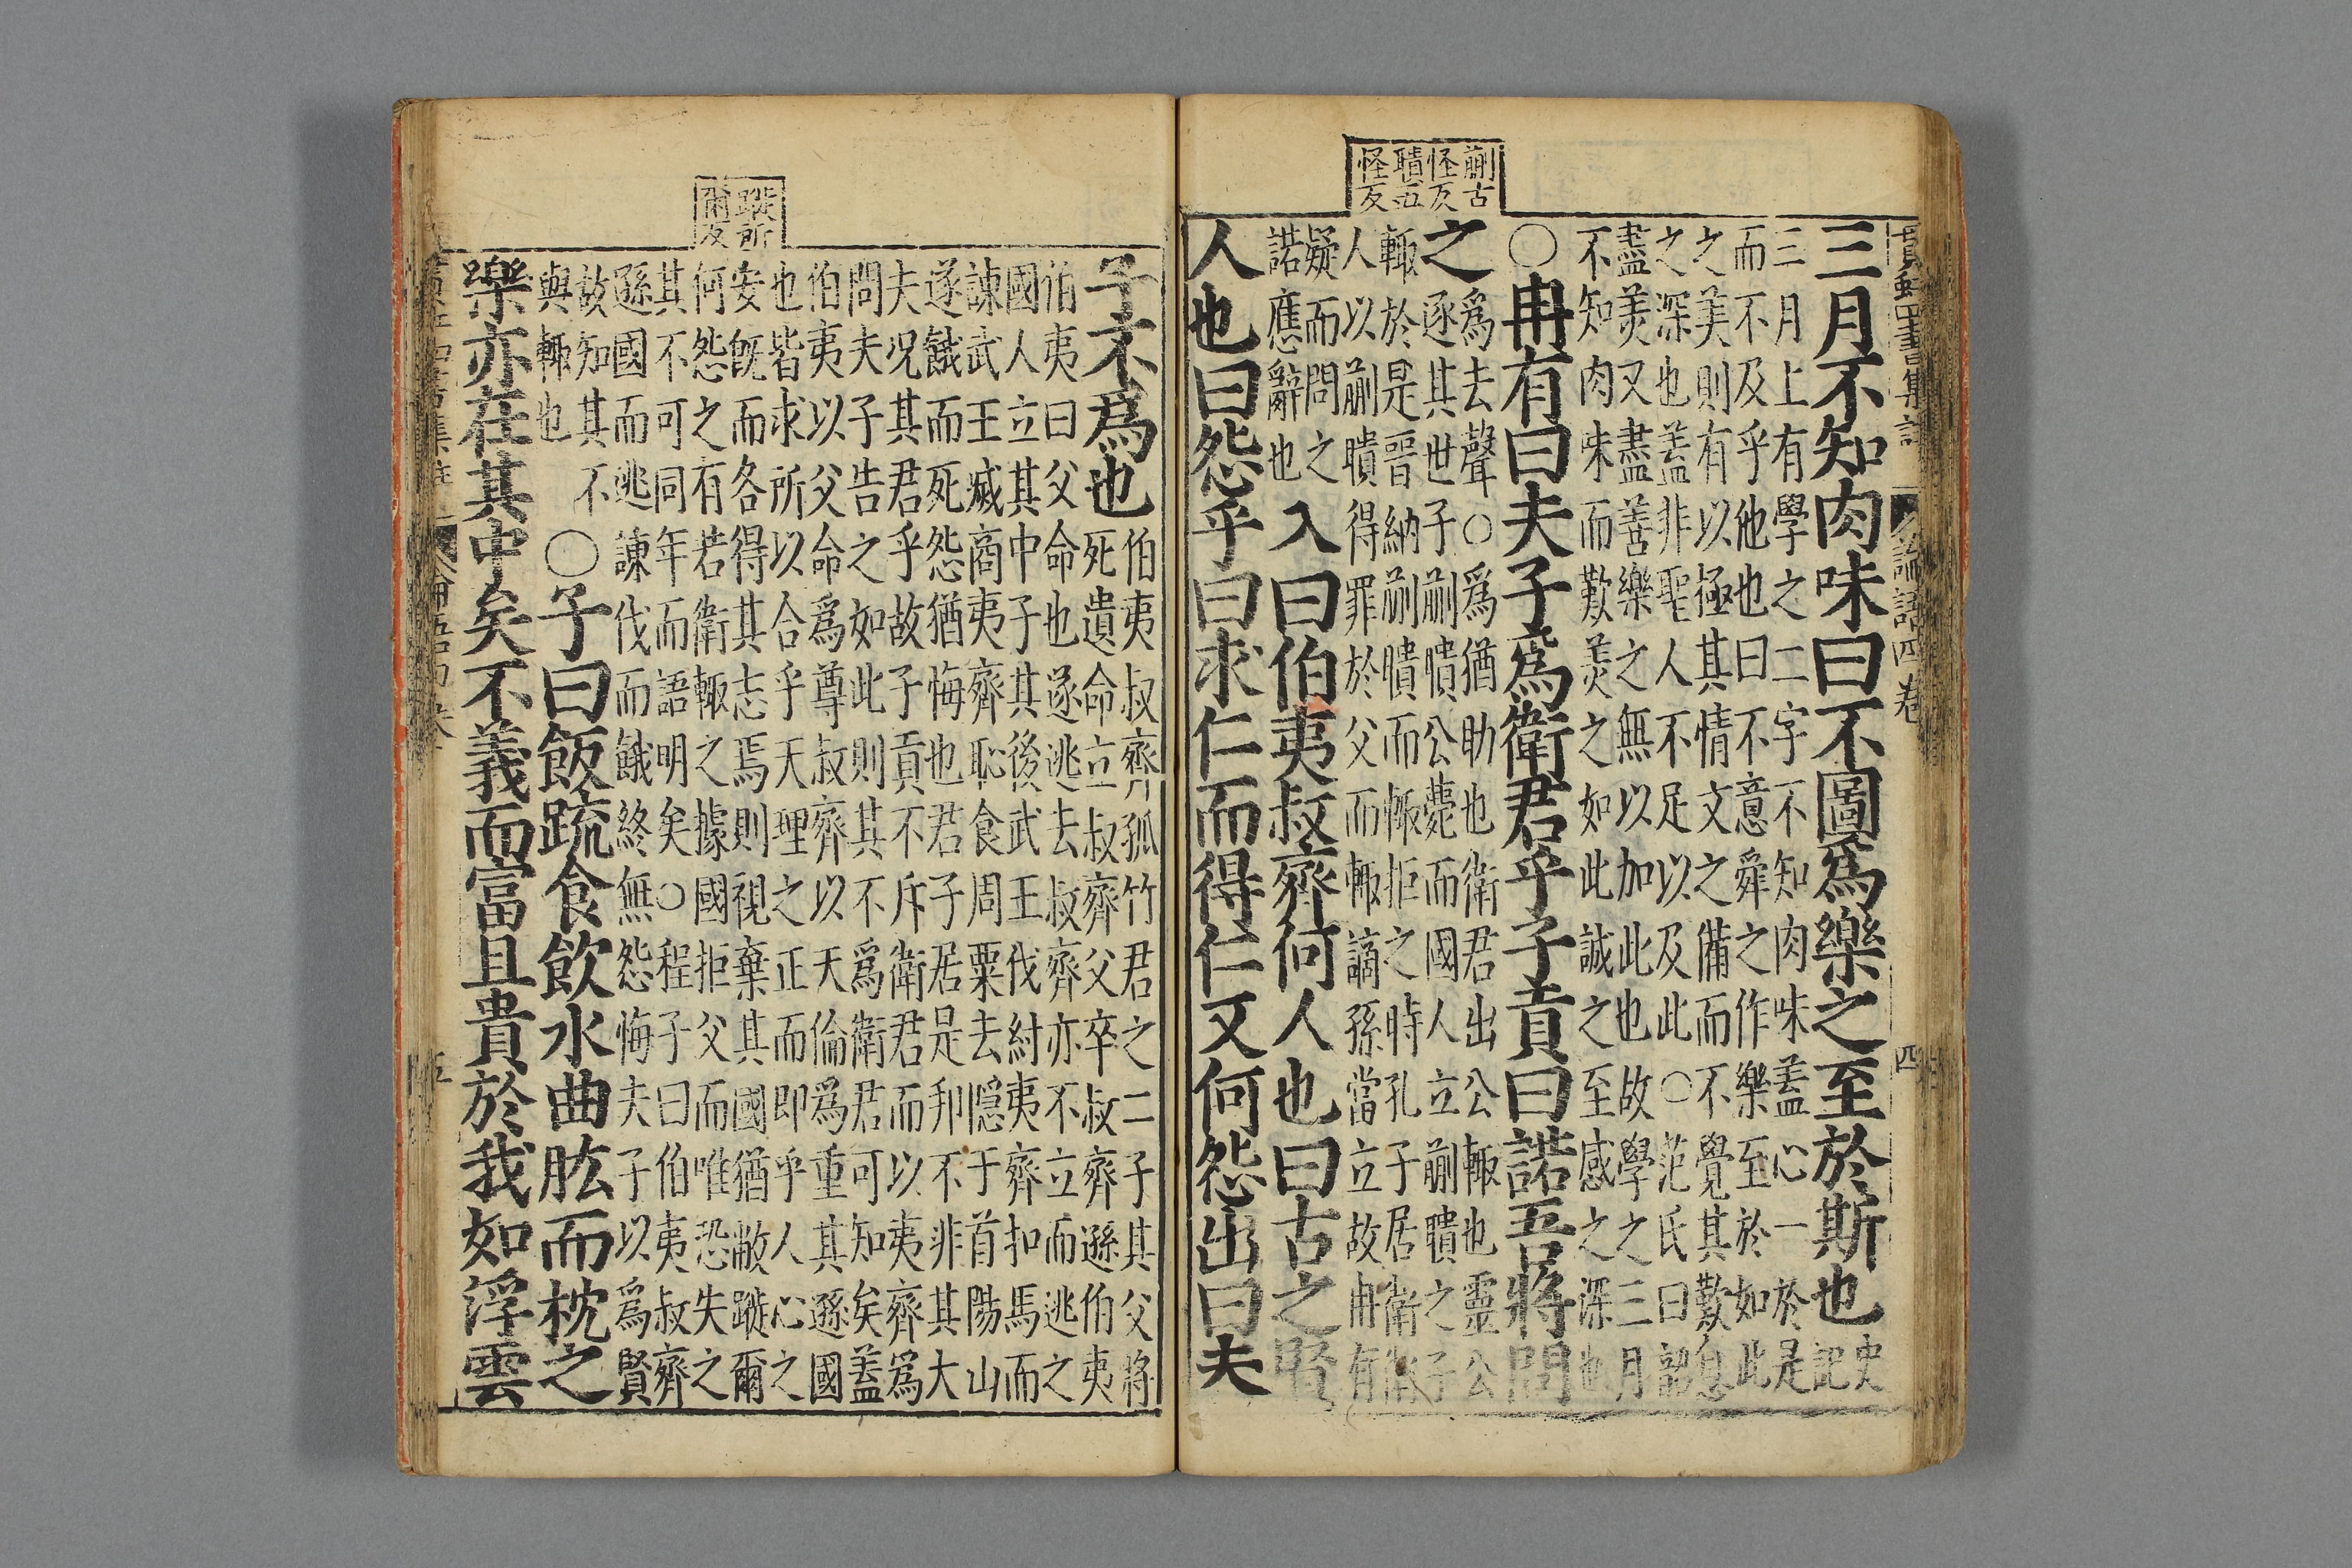 四書集註 論語四卷 四
蒯古
怪反
聵五
怪反
三月不知肉味曰不圖爲樂之至於斯也史記
三月上有學之二字不知肉味蓋心一於是
而不及乎他也曰不意舜之作樂至於如此
之美則有以極其情文之備而不覺其歎息
之深也蓋非聖人不足以及此○范氏曰韶
盡美又盡善樂之無以加此也故學之三月
不知肉味而歎美之如此誠之至感之深也
○冉有曰夫子爲衛君乎子貢曰諾吾將問
之爲去聲○爲猶助也衛君出公輒也靈公
逐其世子蒯聵公薨而國人立蒯聵之子
輒於是晉納蒯聵而輒拒之時孔子居衛衛
人以蒯聵得罪於父而輒謫孫當立故冉有
疑而問之
諾應辭也
入曰伯夷叔齊何人也曰古之賢
人也曰怨乎曰求仁而得仁又何怨出曰夫
蹝所
爾反
子不爲也伯夷叔齊孤竹君之二子其父將
死遺命立叔齊父卒叔齊遜伯夷
伯夷曰父命也遂逃去叔齊亦不立而逃之
國人立其中子其後武王伐紂夷齊扣馬而
諫武王滅商夷齊恥食周粟去隱于首陽山
遂餓而死怨猶悔也君子居是邦不非其大
夫况其君乎故子貢不斥衛君而以夷齊爲
問夫子告之如此則其不爲衛君可知矣蓋
伯夷以父命爲尊叔齊以天倫爲重其遜國
也皆求所以合乎天理之正而即乎人心之
安旣而各得其志焉則視棄其國猶敝蹝爾
何怨之有若衛輒之據國拒父而唯恐失之
其不可同年而語明矣○程子曰伯夷叔齊
遜國而逃諫伐而餓終無怨悔夫子以爲賢
故知其不
與輒也
○子曰飯疏食飲水曲肱而枕之
樂亦在其中矣不義而富且貴於我如浮雲